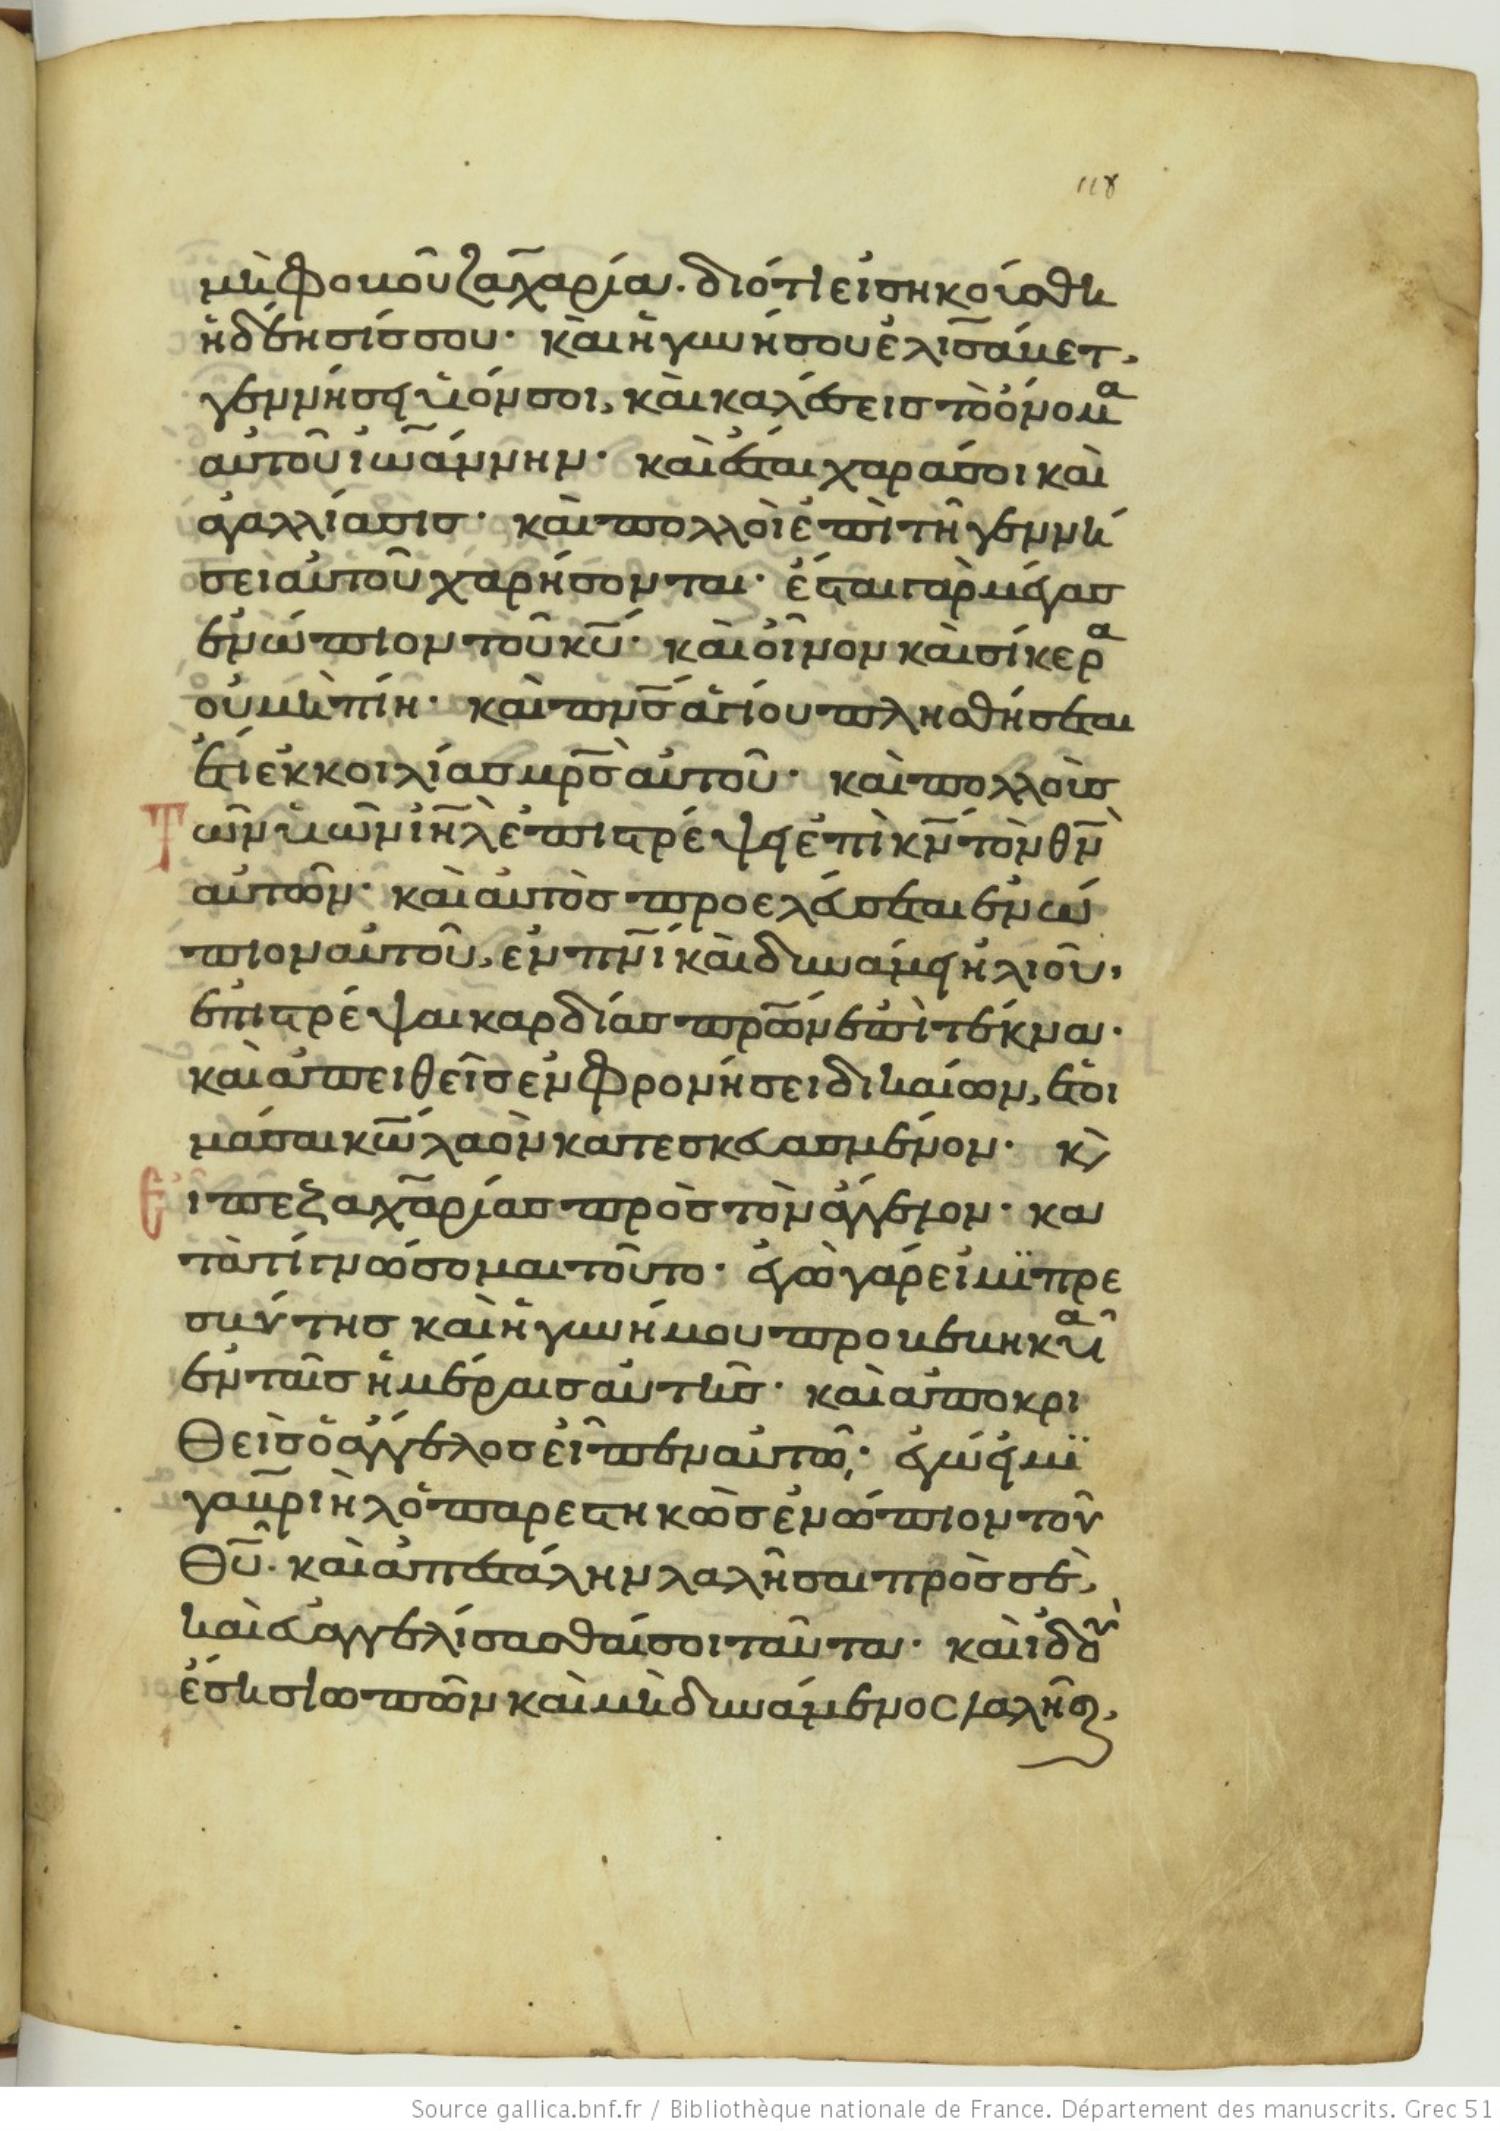 118
μὴ φοβοῦ ζαχαρία· διότι εἰσηκούσθη
ἡ δέησίς σου· καὶ ἡ γυνή σου ἐλισάβετ,
γεννήσει υἱόν σοι, καὶ καλέσεις τὸ ὄνομα
αὐτοῦ ἰωάννην· καὶ ἔσται χαρά σοι καὶ
ἀγαλλίασις· καὶ πολλοὶ ἐπὶ τῆ γεννή
σει αὐτοῦ χαρήσονται· ἔσται γὰρ μέγας
ἐνώπιον τοῦ κῡ· καὶ οἶνον καὶ σίκερα
οὐ μὴ πίη· καὶ πνς̄ ἁγίου πλησθήσεται
ἔτι ἐκ κοιλίας μρς̄ αὐτοῦ· καὶ πολλοὺς
Τῶν υἱῶν ιη̄λ ἐπιστρέψει ἐπὶ κν̄ τὸν θν̄
αὐτῶν· καὶ αὐτὸς προελεύσεται ἐνώ
πιον αὐτοῦ, ἐν πνῑ καὶ δυνάμει ἡλιοῦ,
ἐπιστρέψαι καρδίας πρω̄ν ἐπὶ τέκνα·
καὶ ἀπειθεῖς ἐν φρονήσει δικαίων, ἑτοι
μάσαι κω̄ λαὸν κατεσκευασμένον· κὶ
Εἶπε ζαχαρίας πρὸς τὸν ἄγγελον· κα
τὰ τί γνώσομαι τοῦτο· ἐγὼ γάρ εἰμϊ πρε
σβύτης καὶ ἡ γυνή μου προβεβηκυῖα
ἐν ταῖς ἡμέραις αὐτῆς· καὶ ἀποκρι
θεὶς ὁ ἄγγελος εἶπεν αὐτῶ· ἐγώ εἰμϊ
γαβριὴλ ὁ παρεστηκὼς ἐνώπιον τοῦ
θῡ· καὶ ἀπεστάλην λαλῆσαι πρὸς σὲ,
καὶ εὐαγγελίσασθαί σοι ταῦτα· καὶ ἰδοὺ
ἔση σιωπῶν καὶ μὴ δυνάμενος λαλῆσαι,
Source gallica.bnf.fr / Bibliothèque nationale de France. Département des manuscrits. Grec 51